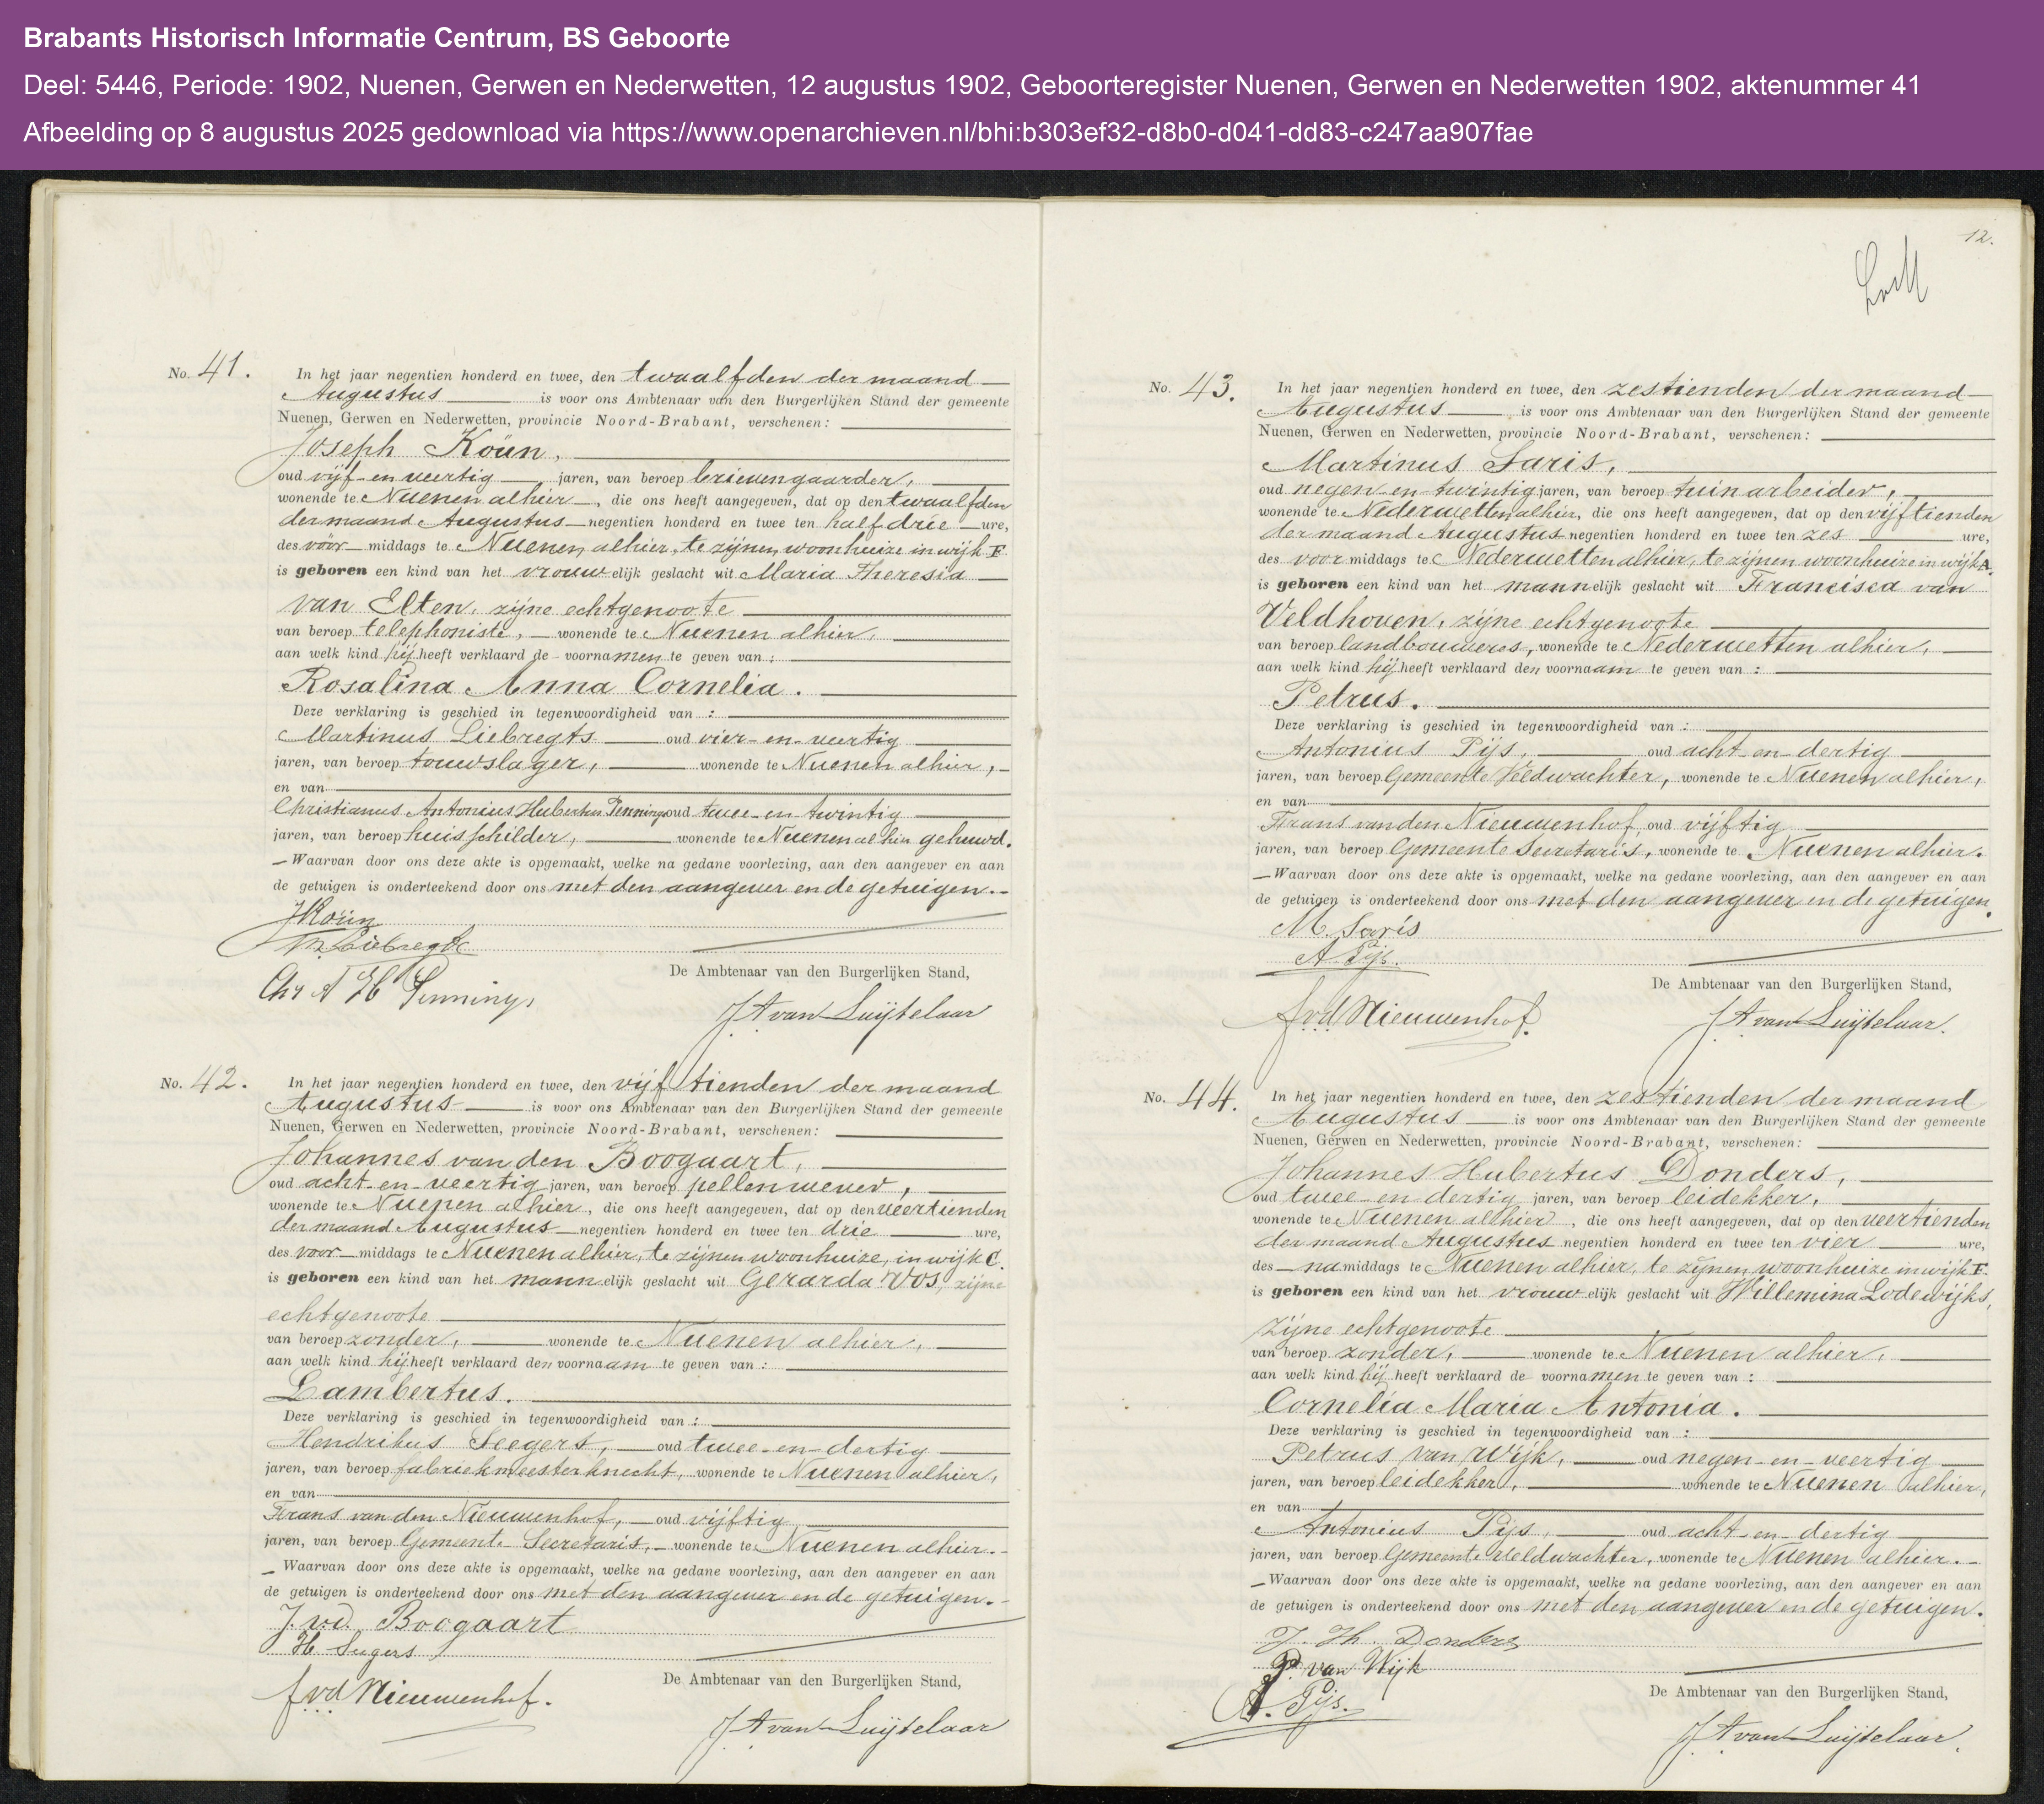 Brabants Historisch Informatie Centrum, BS Geboorte
Deel: 5446, Periode: 1902, Nuenen, Gerwen en Nederwetten, 12 augustus 1902, Geboorteregister Nuenen, Gerwen en Nederwetten 1902, aktenummer 41
Afbeelding op 8 augustus 2025 gedownload via https://www.openarchieven.nl/bhi:b303ef32-d8b0-d041-dd83-c247aa907fae
No. 41.
In het jaar negentien honderd en twee, den twaalfden der maand
Augustus is voor ons Ambtenaar van den Burgerlijken Stand der gemeente
Nuenen, Gerwen en Nederwetten, provincie Noord-Brabant, verschenen:
Joseph Koün,
oud vijf-en-veertig jaren, van beroep brievengaarder,
wonende te Nuenen alhier, die ons heeft aangegeven, dat op den twaalfden
der maand Augustus negentien honderd en twee ten half drie ure,
des voor middags te Nuenen alhier, te zijnen woonhuize in wijk F.
is geboren een kind van het vrouwelijk geslacht uit Maria Theresia
van Elten, zijne echtgenoote
van beroep telephoniste, wonende te Nuenen alhier,
aan welk kind hij heeft verklaard de voornamen te geven van:
Rosalina Anna Cornelia.
Deze verklaring is geschied in tegenwoordigheid van:
Martinus Liebregts oud vier-en-veertig
jaren, van beroep touwslager, wonende te Nuenen alhier,
en van
Christianus Antonius Hubertus Pennings oud twee-en-twintig
jaren, van beroep huisschilder, wonende te Nuenen alhier gehuwd.
Waarvan door ons deze akte is opgemaakt, welke na gedane voorlezing, aan den aangever en aan
de getuigen is onderteekend door ons met den aangever en de getuigen.
J Koün
M. Liebregts
Chr A H Pennings
De Ambtenaar van den Burgerlijken Stand,
J A van Luijtelaar
No. 42.
In het jaar negentien honderd en twee, den vijftienden der maand
Augustus is voor ons Ambtenaar van den Burgerlijken Stand der gemeente
Nuenen, Gerwen en Nederwetten, provincie Noord-Brabant, verschenen:
Johannes van den Boogaart,
oud acht-en-veertig jaren, van beroep pellenwever,
wonende te Nuenen alhier, die ons heeft aangegeven, dat op den veertienden
der maand Augustus negentien honderd en twee ten drie ure,
des voor middags te Nuenen alhier, te zijnen woonhuize, in wijk C.
is geboren een kind van het mannelijk geslacht uit Gerarda Vos, zijne
echtgenoote
van beroep zonder, wonende te Nuenen alhier,
aan welk kind hij heeft verklaard den voornaam te geven van:
Lambertus.
Deze verklaring is geschied in tegenwoordigheid van:
Hendrikus Seegers, oud twee-en-dertig
jaren, van beroep fabriekmeesterknecht, wonende te Nuenen alhier,
en van
Frans van den Nieuwenhof, oud vijftig
jaren, van beroep Gemeente Secretaris, wonende te Nuenen alhier.
Waarvan door ons deze akte is opgemaakt, welke na gedane voorlezing, aan den aangever en aan
de getuigen is onderteekend door ons met den aangever en de getuigen.
J. v.d. Boogaart
H Segers
F vd Nieuwenhof.
De Ambtenaar van den Burgerlijken Stand,
J A van Luijtelaar
12.
No. 43.
In het jaar negentien honderd en twee, den zestienden der maand
Augustus is voor ons Ambtenaar van den Burgerlijken Stand der gemeente
Nuenen, Gerwen en Nederwetten, provincie Noord-Brabant, verschenen:
Martinus Saris,
oud negen-en-twintig jaren, van beroep tuinarbeider,
wonende te Nederwetten alhier, die ons heeft aangegeven, dat op den vijftienden
der maand Augustus negentien honderd en twee ten zes ure,
des voor middags te Nederwetten alhier, te zijnen woonhuize in wijk A.
is geboren een kind van het mannelijk geslacht uit Francisca van
Veldhoven, zijne echtgenoote
van beroep landbouweres, wonende te Nederwetten alhier,
aan welk kind hij heeft verklaard den voornaam te geven van:
Petrus.
Deze verklaring is geschied in tegenwoordigheid van:
Antonius Pijs, oud acht-en-dertig
jaren, van beroep Gemeente Veldwachter, wonende te Nuenen alhier,
en van
Frans van den Nieuwenhof, oud vijftig
jaren, van beroep Gemeente Secretaris, wonende te Nuenen alhier.
Waarvan door ons deze akte is opgemaakt, welke na gedane voorlezing, aan den aangever en aan
de getuigen is onderteekend door ons met den aangever en de getuigen.
M. Saris
A. Pijs.
F. v.d. Nieuwenhof.
De Ambtenaar van den Burgerlijken Stand,
J A van Luijtelaar.
No. 44.
In het jaar negentien honderd en twee, den zestienden der maand
Augustus is voor ons Ambtenaar van den Burgerlijken Stand der gemeente
Nuenen, Gerwen en Nederwetten, provincie Noord-Brabant, verschenen:
Johannes Hubertus Donders,
oud twee-en-dertig jaren, van beroep leidekker,
wonende te Nuenen allhier, die ons heeft aangegeven, dat op den veertienden
der maand Augustus negentien honderd en twee ten vier ure,
des namiddags te Nuenen alhier, te zijnen woonhuize in wijk F.
is geboren een kind van het vrouwelijk geslacht uit Willemina Lodewijks,
zijne echtgenoote
van beroep zonder, wonende te Nuenen alhier,
aan welk kind hij heeft verklaard de voornamen te geven van:
Cornelia Maria Antonia.
Deze verklaring is geschied in tegenwoordigheid van:
Petrus van Wijk, oud negen-en-veertig
jaren, van beroep leidekker, wonende te Nuenen alhier,
en van
Antonius Pijs, oud acht-en-dertig
jaren, van beroep Gemeente Veldwachter, wonende te Nuenen alhier.
Waarvan door ons deze akte is opgemaakt, welke na gedane voorlezing, aan den aangever en aan
de getuigen is onderteekend door ons met den aangever en de getuigen.
J. H. Donders
P. van Wijk
A. Pijs.
De Ambtenaar van den Burgerlijken Stand,
J A van Luijtelaar.